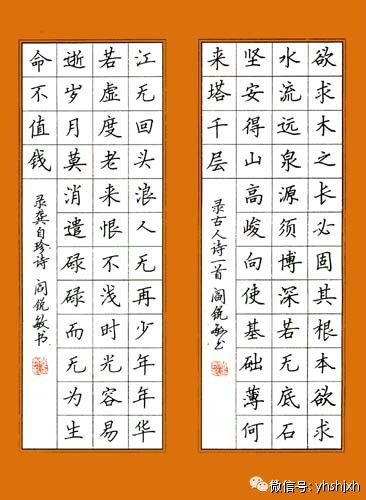 欲求木之长必固其根本欲求
水流远泉源须博深若无底石
坚安得山高峻向使基础薄何
来塔千层
录古人诗一首 阎锐敏书
江无回头浪人无再少年年华
若虚度老来恨不浅时光容易
逝岁月莫消遣碌碌而无为生
命不值钱
录龚自珍诗 阎锐敏书
微信号: yhshjxh